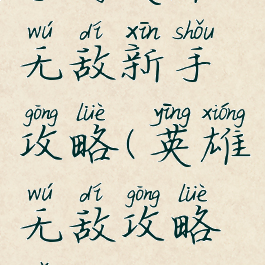 wú dí xīn shǒu
无敌新手
gōng lüè yīng xióng
攻略(英雄
wú dí gōng lüè
无敌攻略